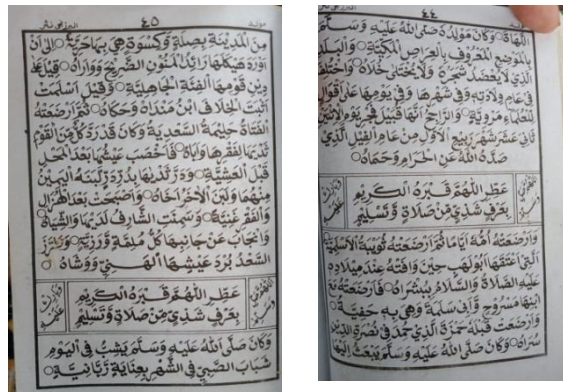 ٤٤
اللَّهَاةَ ۝ وَكَانَ مَوْلِدُهُ صَلَّى اللهُ عَلَيْهِ وَسَلَّمَ
بِالْمَوْضِعِ الْمَعْرُوفِ بِالْعِرَاصِ الْمَكِّيَّةِ ۝ وَالْبَلَدِ
الَّذِي لَا يُعْضَدُ شَجَرُهُ وَلَا يُخْتَلَى خَلَاهُ ۝ وَاخْتُلِفَ
فِي عَامِ وِلَادَتِهِ وَفِي شَهْرِهَا وَفِي يَوْمِهَا عَلَى أَقْوَالٍ
لِلْعُلَمَاءِ مَرْوِيَّةٍ ۝ وَالرَّاجِحُ أَنَّهَا قُبَيْلَ فَجْرِ يَوْمِ الْاثْنَيْنِ
ثَانِي عَشَرَ شَهْرِ رَبِيعِ الْأَوَّلِ مِنْ عَامِ الْفِيلِ الَّذِي
صَدَّهُ اللهُ عَنِ الْحَرَامِ وَحَمَاهُ ۝
عَطِّرِ اللَّهُمَّ قَبْرَهُ الْكَرِيمَ
بِعَرْفٍ شَذِيٍّ مِنْ صَلَاةٍ وَتَسْلِيمٍ
وَأَرْضَعَتْهُ أُمُّهُ أَيَّامًا ثُمَّ أَرْضَعَتْهُ ثُوَيْبَةُ الْأَسْلَمِيَّةُ
الَّتِي أَعْتَقَهَا أَبُو لَهَبٍ حِينَ وَافَتْهُ عِنْدَ مِيلَادِهِ
عَلَيْهِ الصَّلَاةُ وَالسَّلَامُ بِبُشْرَاهُ ۝ فَأَرْضَعَتْهُ مَعَ
ابْنِهَا مَسْرُوحٍ وَأَبِي سَلَمَةَ وَهِيَ بِهِ حَفِيَّةٌ ۝
وَأَرْضَعَتْ قَبْلَهُ حَمْزَةَ الَّذِي حُمِدَ فِي نُصْرَةِ الدِّينِ
سُرَاهُ ۝ وَكَانَ صَلَّى اللهُ عَلَيْهِ وَسَلَّمَ يَبْعَثُ إِلَيْهَا
مولد ٤٥ البرزنجي نثر
مِنَ الْمَدِينَةِ بِصِلَةٍ وَكِسْوَةٍ هِيَ بِهَا حَرِيَّةٌ ۝ إِلَى أَنْ
أَوْرَدَ هَيْكَلَهَا رَائِدُ الْمَنُونِ الضَّرِيحَ وَوَارَاهُ ۝ قِيلَ عَلَى
دِينِ قَوْمِهَا الْفِئَةِ الْجَاهِلِيَّةِ ۝ وَقِيلَ أَسْلَمَتْ
أَثْبَتَ الْخِلَافَ ابْنُ مَنْدَاهُ وَحَكَاهُ ۝ ثُمَّ أَرْضَعَتْهُ
الْفَتَاةُ حَلِيمَةُ السَّعْدِيَّةُ وَكَانَ قَدْ رَدَّ كُلٌّ مِنَ الْقَوْمِ
ثَدْيَهَا لِفَقْرِهَا وَأَبَاهُ ۝ فَأَخْصَبَ عَيْشُهَا بَعْدَ الْمَحْلِ
قَبْلَ الْعَشِيَّةِ ۝ وَدَرَّ ثَدْيُهَا بِدُرٍّ دَرٍّ أَلْبَنَهُ الْيَمِينُ
مِنْهُمَا وَلَبَنَ الْآخَرُ أَخَاهُ ۝ وَأَصْبَحَتْ بَعْدَ الْهُزَالِ
وَالْفَقْرِ غَنِيَّةً ۝ وَسَمِنَتِ الشَّارِفُ لَدَيْهَا وَالشِّيَاهُ ۝
وَانْجَابَ عَنْ جَانِبِهَا كُلُّ مُلِمَّةٍ وَرَزِيَّةٍ ۝ وَطَرَّزَ
السَّعْدُ بُرْدَ عَيْشِهَا الْهَنِيِّ وَوَشَّاهُ ۝
عَطِّرِ اللَّهُمَّ قَبْرَهُ الْكَرِيمَ
بِعَرْفٍ شَذِيٍّ مِنْ صَلَاةٍ وَتَسْلِيمٍ
وَكَانَ صَلَّى اللهُ عَلَيْهِ وَسَلَّمَ يَشِبُّ فِي الْيَوْمِ
شَبَابَ الصَّبِيِّ فِي الشَّهْرِ بِعِنَايَةٍ رَبَّانِيَّةٍ ۝